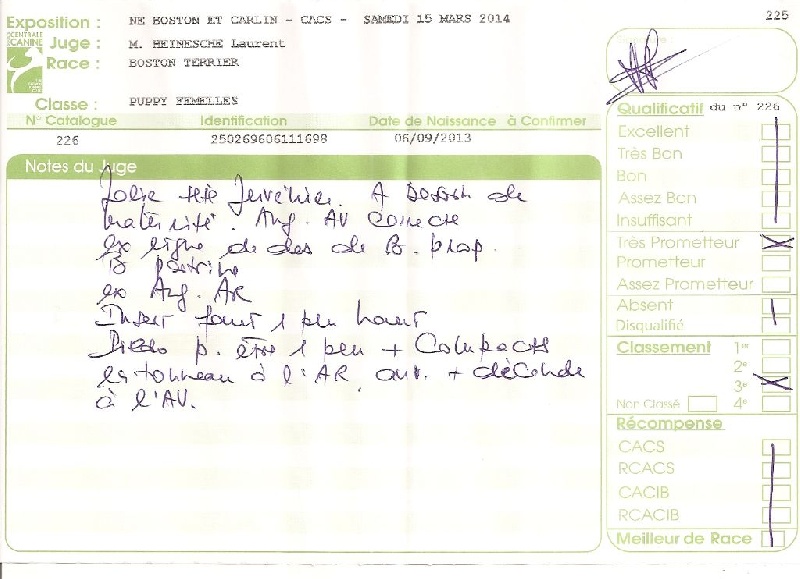 225
Exposition : NE BOSTON ET CARLIN - CACS - SAMEDI 15 MARS 2014
CENTRALE
CANINE
Juge : M. HEINESCHE Laurent
Race : BOSTON TERRIER
Classe : PUPPY FEMELLES
N° Catalogue Identification Date de Naissance à Confirmer
226 250269606111698 06/09/2013
Notes du Juge
Jolie tête Juvénile. A besoin de
maturité. Ang. AV Correcte
ex ligne de dos de B. prop.
B poitrine
ex Ang. AR
Insert fouet 1 peu haut
p. être 1 peu + Compacte
en tonneau à l'AR. ouv. + décende
à l'AV.
Qualificatif du n° 226
Excellent
Très Bon
Bon
Assez Bon
Insuffisant
Très Prometteur
Prometteur
Assez Prometteur
Absent
Disqualifié
Classement 1er
2e
3e
Non Classé 4e
Récompense
CACS
RCACS
CACIB
RCACIB
Meilleur de Race